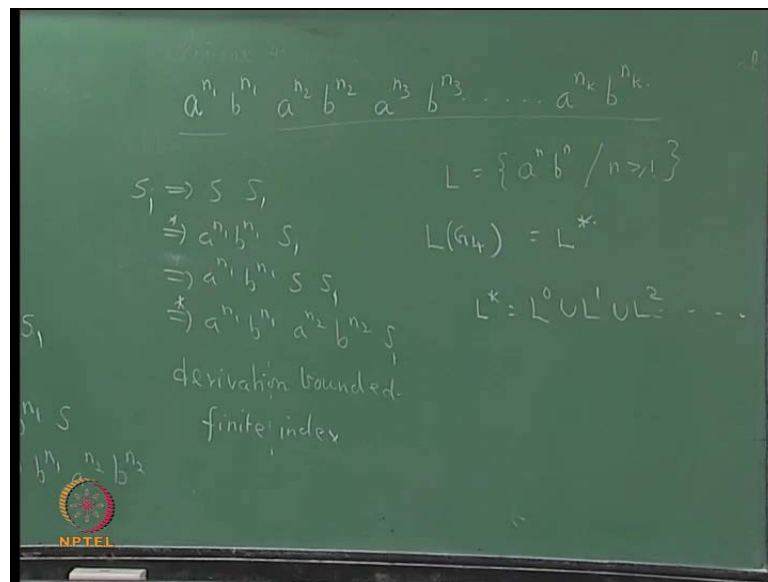 a^{n_1} b^{n_1} a^{n_2} b^{n_2} a^{n_3} b^{n_3} ...... a^{n_k} b^{n_k}.
S_1 ⇒ S S_1
⇒* a^{n_1} b^{n_1} S_1
⇒ a^{n_1} b^{n_1} S S_1
⇒* a^{n_1} b^{n_1} a^{n_2} b^{n_2} S_1
derivation bounded.
finite index
L = { a^n b^n / n ≥ 1 }
L(G_4) = L^*
L^* = L^0 ∪ L^1 ∪ L^2 - - - -
S_1
n_1 S
b^{n_1} a^{n_2} b^{n_2}
NPTEL